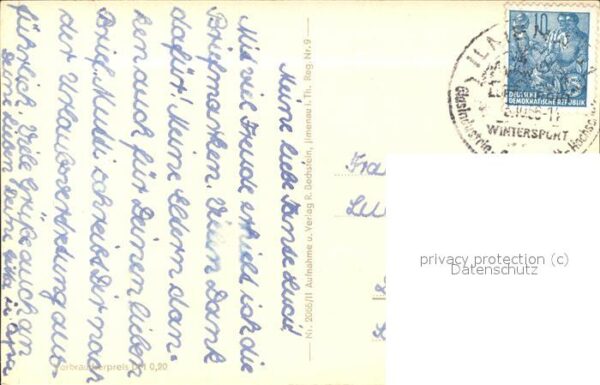 Meine liebe Tante Lucie!
Mit viel Freude erhielt ich die
Briefmarken. Vielen Dank
dafür! Meine Eltern dan-
ken auch für Deinen lieben
Brief. Mutti schreibt Dir nach
der Urlaubsverbredung aus-
führlich. Viele Grüße auch an
Deine Lieben Deine
Nr. 2066/11 Aufnahme u. Verlag R. Bechstein, Ilmenau i. Th. Reg. Nr. 9
Verbraucherpreis DM 0,20
10
DEUTSCHE
DEMOKRATISCHE REPUBLIK
WINTERSPORT
Glasindustrie
Hochschule
Fra
privacy protection (c)
Datenschutz